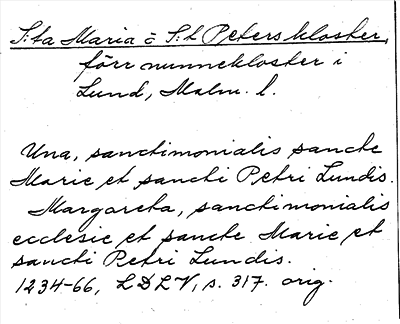 S:ta Maria o S:t Peters kloster,
förr nunnekloster i
Lund, Malm. l.
Una, sanctimonialis sancte
Marie et sancti Petri Lundis.
Margareta, sanctimonialis
ecclesie et sancte Marie et
sancti Petri Lundis.
1234-66, LDLV, s. 317. orig.